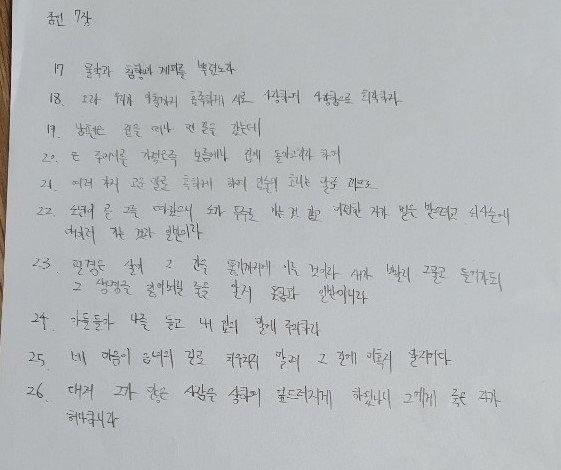 잠언 7장
17 몰약과 침향과 계피를 뿌렸노라
18. 오라 우리가 아침까지 흡족하게 서로 사랑하며 사랑함으로 희락하자
19. 남편은 집을 떠나 먼 길을 갔는데
20. 은 주머니를 가졌은즉 보름에나 집에 돌아오리라 하여
21. 여러 가지 고운 말로 혹하게 하며 입술의 호리는 말로 꾀므로
22. 소년이 곧 그를 따랐으니 소가 푸주로 가는 것 같고 미련한 자가 벌을 받으려고 쇠사슬에
매이러 가는 것과 일반이라
23. 필경은 살이 그 간을 뚫기까지에 이를 것이라 새가 빨리 그물로 들어가되
그 생명을 잃어버릴 줄을 알지 못함과 일반이니라
24. 아들들아 나를 듣고 내 입의 말에 주의하라
25. 네 마음이 음녀의 길로 치우치지 말며 그 길에 미혹지 말지어다
26. 대저 그가 많은 사람을 상하여 엎드러지게 하였나니 그에게 죽은 자가
허다하니라